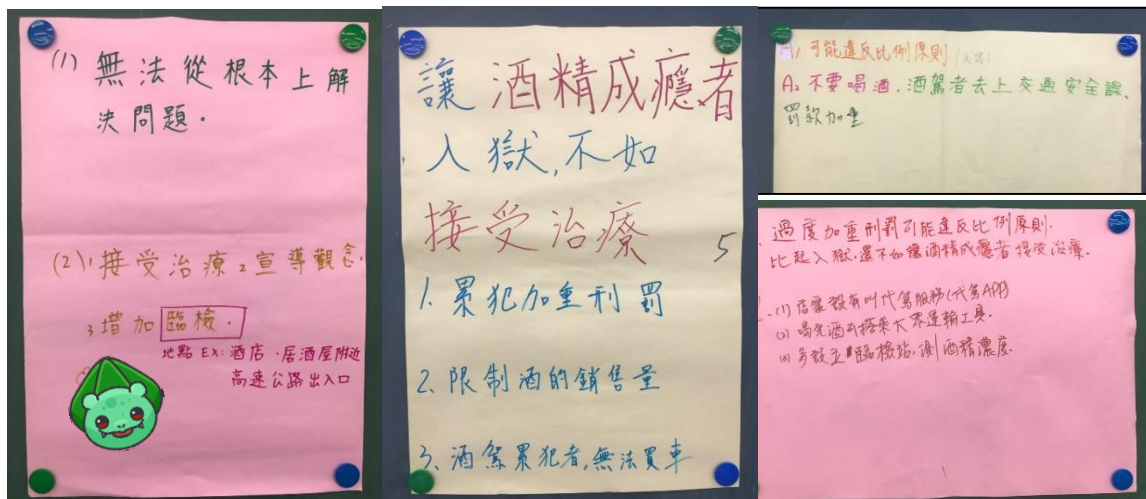 (1) 無法從根本上解
決問題.
(2) 1, 接受治療 2 宣導觀念.
3 增加 臨檢.
地點 EX: 酒店 . 居酒屋附近
高速公路出入口
讓 酒精成癮者
入獄, 不如
接受治療
5
1. 累犯加重刑罰
2. 限制酒的銷售量
3. 酒駕累犯者, 無法買車
可能違反比例原則
A2 不要喝酒. 酒駕者去上交通安全課、
罰款加重
過度加重刑罰可能違反比例原則.
比起入獄, 還不如讓酒精成癮者接受治療.
(1) 店家設有叫代駕服務(代駕APP)
(2) 喝完酒可搭乘大眾運輸工具.
多設立 臨檢站, 測酒精濃度.